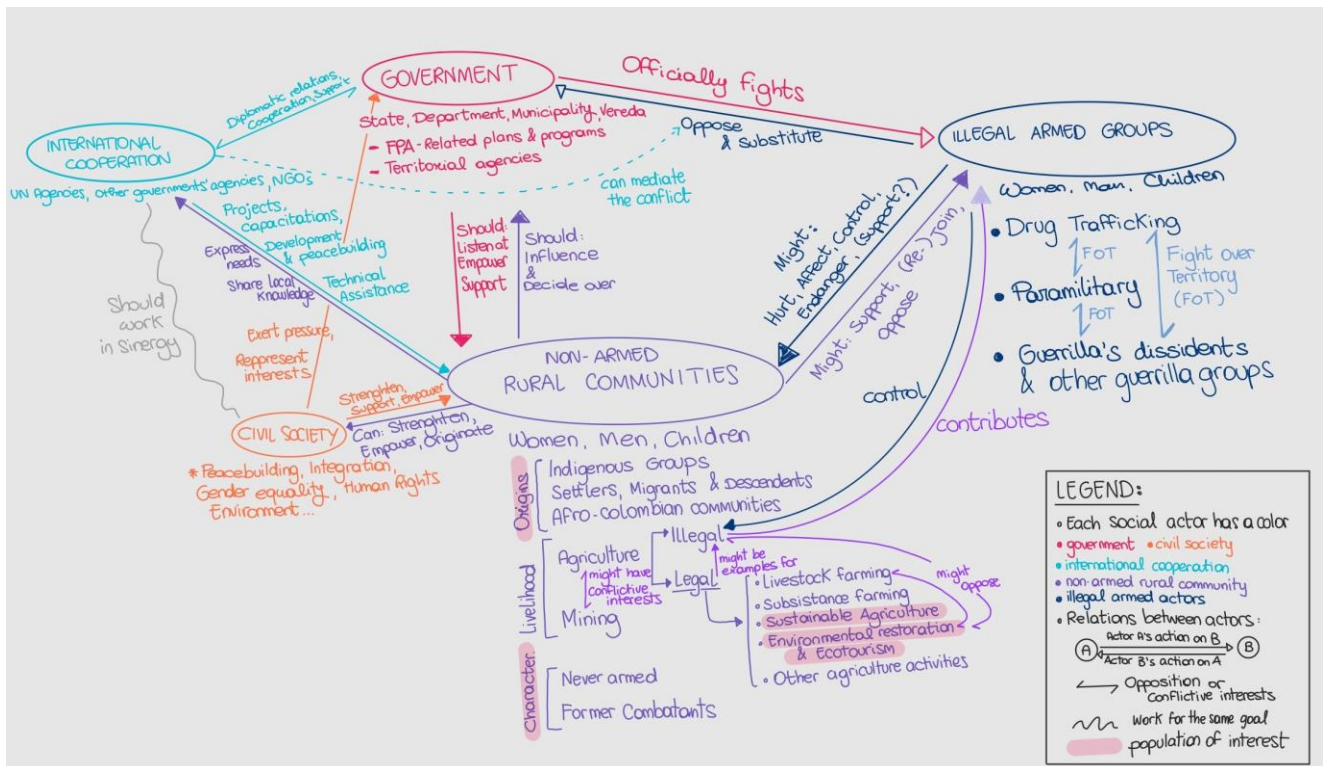 GOVERNMENT
State, Department, Municipality, Vereda
- FPA-Related plans & programs
- Territorial agencies
Officially fights
Oppose
& substitute
Diplomatic relations,
Cooperation, Support
INTERNATIONAL
COOPERATION
UN Agencies, Other governments' agencies, NGOs
can mediate
the conflict
ILLEGAL ARMED GROUPS
Women, Man, Children
• Drug Trafficking
FOT
• Paramilitary
FOT
• Guerrilla's dissidents
& other guerrilla groups
Fight over
Territory
(FOT)
Projects,
capacitations,
Development
& peacebuilding
Technical
Assistance
Express
needs
Share local
Knowledge
Should
work
in Sinergy
Should:
Listen at
Empower
Support
Should:
Influence
&
Decide over
Might:
Hurt, Affect, Control,
Endanger, (Support?)
Might: Support, (Re-) Join,
oppose
control
contributes
Exert pressure,
Reppresent
interests
Strenghten,
Support, Empower
Can: Strenghten,
Empower, Originate
CIVIL SOCIETY
* Peacebuilding, Integration,
Gender equality, Human Rights
Environment...
NON-ARMED
RURAL COMMUNITIES
Women, Men, Children
Origins
Indigenous Groups
Settlers, Migrants & Descendents
Afro-colombian communities
Livelihood
Agriculture
might have
conflictive
interests
Mining
Illegal
might be
examples for
Legal
• Livestock farming
• Subsistance farming
• Sustainable Agriculture
• Environmental restoration
& Ecotourism
• Other agriculture activities
might
oppose
Character
Never armed
Former Combatants
LEGEND:
• Each social actor has a color
• government • civil society
• international cooperation
• non-armed rural community
• illegal armed actors
• Relations between actors:
A
Actor A's action on B
Actor B's action on A
B
Opposition or
Conflictive interests
Work for the same goal
population of interest